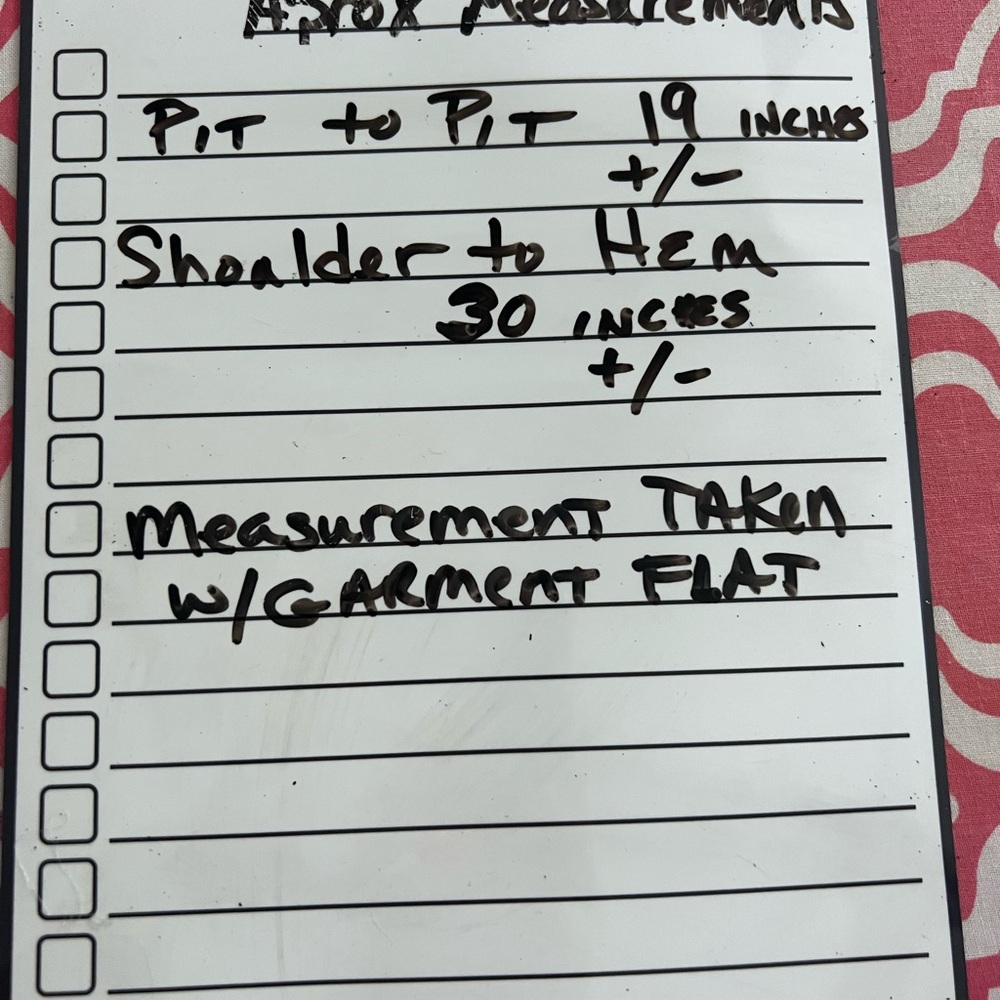 Aprox Measurements
PIT to PIT 19 INCHES
+/-
Shoulder to HEM
30 INCHES
+/-
Measurement TAKen
w/GARment FLAT